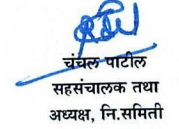 चंचल पाटील
सहसंचालक तथा
अध्यक्ष, नि.समिती